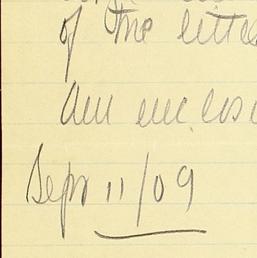 of the lette
am enclos
Sept 11/09